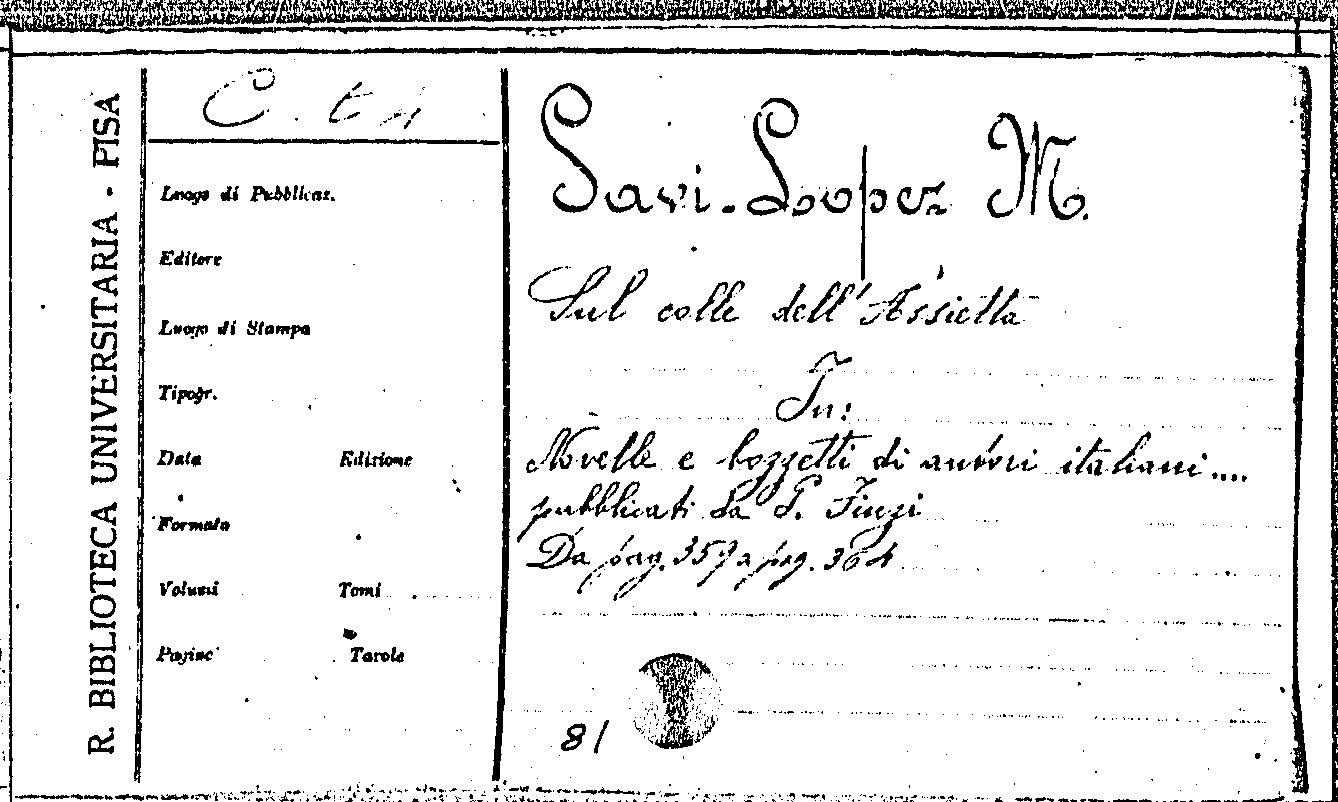 R. BIBLIOTECA UNIVERSITARIA - PISA
Luogo di Pubblicaz.
Editore
Luogo di Stampa
Tipogr.
Data Edizione
Formato
Volumi Tomi
Pagine Tavole
Savi-Lopez M.
Sul colle dell'Assietta
In:
Novelle e bozzetti di autori italiani....
pubblicati da G. Finzi
Da pag. 357 a pag. 364
81